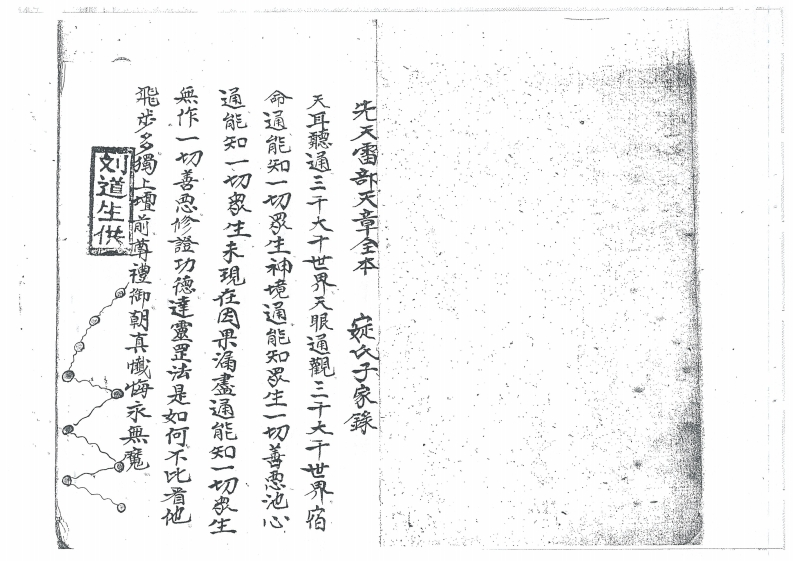 先天雷部天章全本　　家氏子家錄
天耳聽通三千大千世界天眼通觀三千大千世界宿
命通能知一切眾生神境通能知眾生一切善惡池心
通能知一切眾生未現在因果漏盡通能知一切眾生
無作一切善惡修證功德達靈罡法是如何不比看他
飛步多獨上壇前尊禮御朝真懺悔永無魔
刘道生供